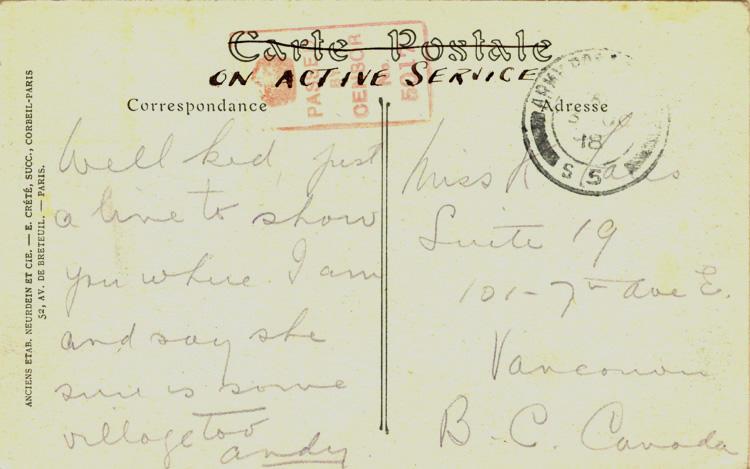 Carte Postale
ON ACTIVE SERVICE
PASSED
BY
CENSOR
No.
5017
ARMY POST
18
S 5
Correspondance
Adresse
Well kid just
a line to show
you where I am
and say she
sure is some
village too
Andy
Miss
Suite 19
101-7th Ave E.
Vancouver
B.C. Canada
ANCIENS ETAB. NEURDEIN ET CIE. — E. CRÉTÉ, SUCC., CORBEIL-PARIS
52, AV. DE BRETEUIL. — PARIS.